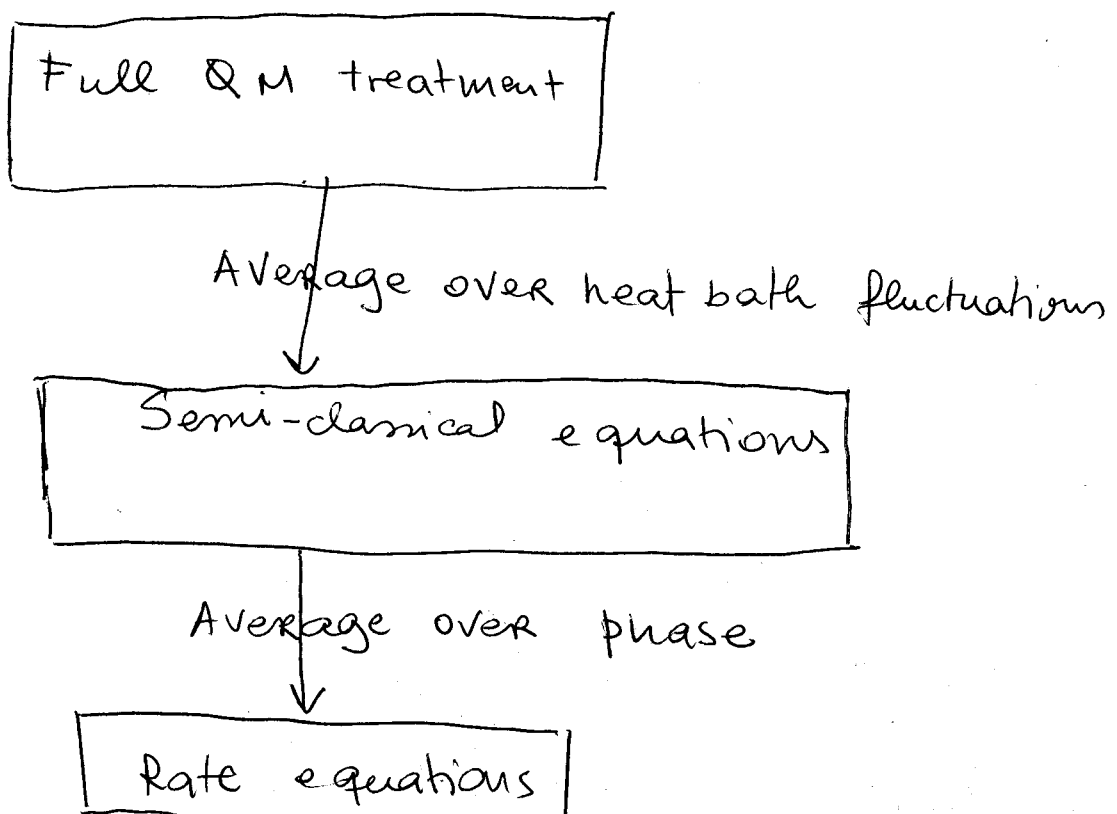 Full QM treatment
Average over heat bath fluctuations
Semi-classical equations
Average over phase
Rate equations